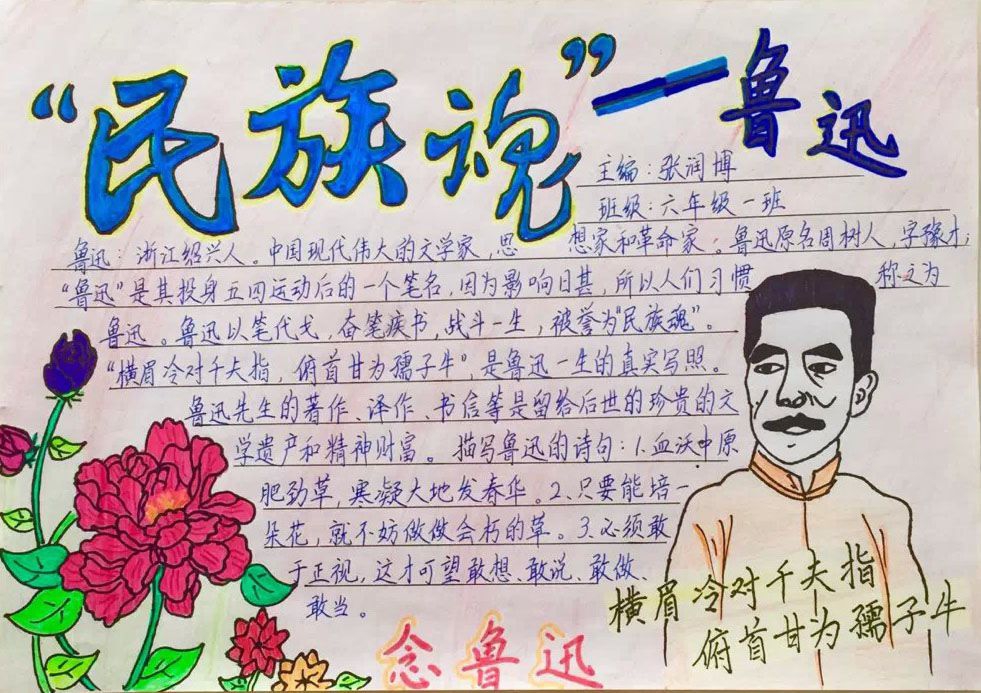 “民族魂”——鲁迅
主编：张润博
班级：六年级一班
鲁迅：浙江绍兴人。中国现代伟大的文学家，思想家和革命家。鲁迅原名周树人，字豫才；
“鲁迅”是其投身五四运动后的一个笔名，因为影响日甚，所以人们习惯称之为
鲁迅。鲁迅以笔代戈，奋笔疾书，战斗一生，被誉为“民族魂”。
“横眉冷对千夫指，俯首甘为孺子牛”，是鲁迅一生的真实写照。
鲁迅先生的著作、译作、书信等是留给后世的珍贵的文
学遗产和精神财富。描写鲁迅的诗句：1.血沃中原
肥劲草，寒凝大地发春华。2、只要能培一
朵花，就不妨做做会朽的草。3.必须敢
于正视，这才可望敢想、敢说、敢做、
敢当。
横眉冷对千夫指
俯首甘为孺子牛
念鲁迅